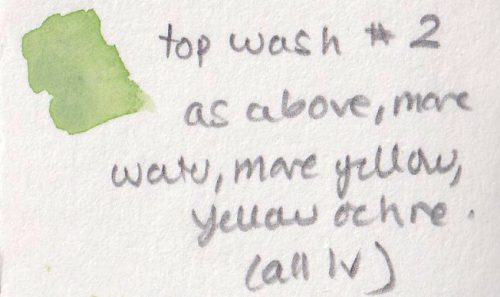 top wash # 2
as above, more
water, more yellow,
yellow ochre.
(all lv)